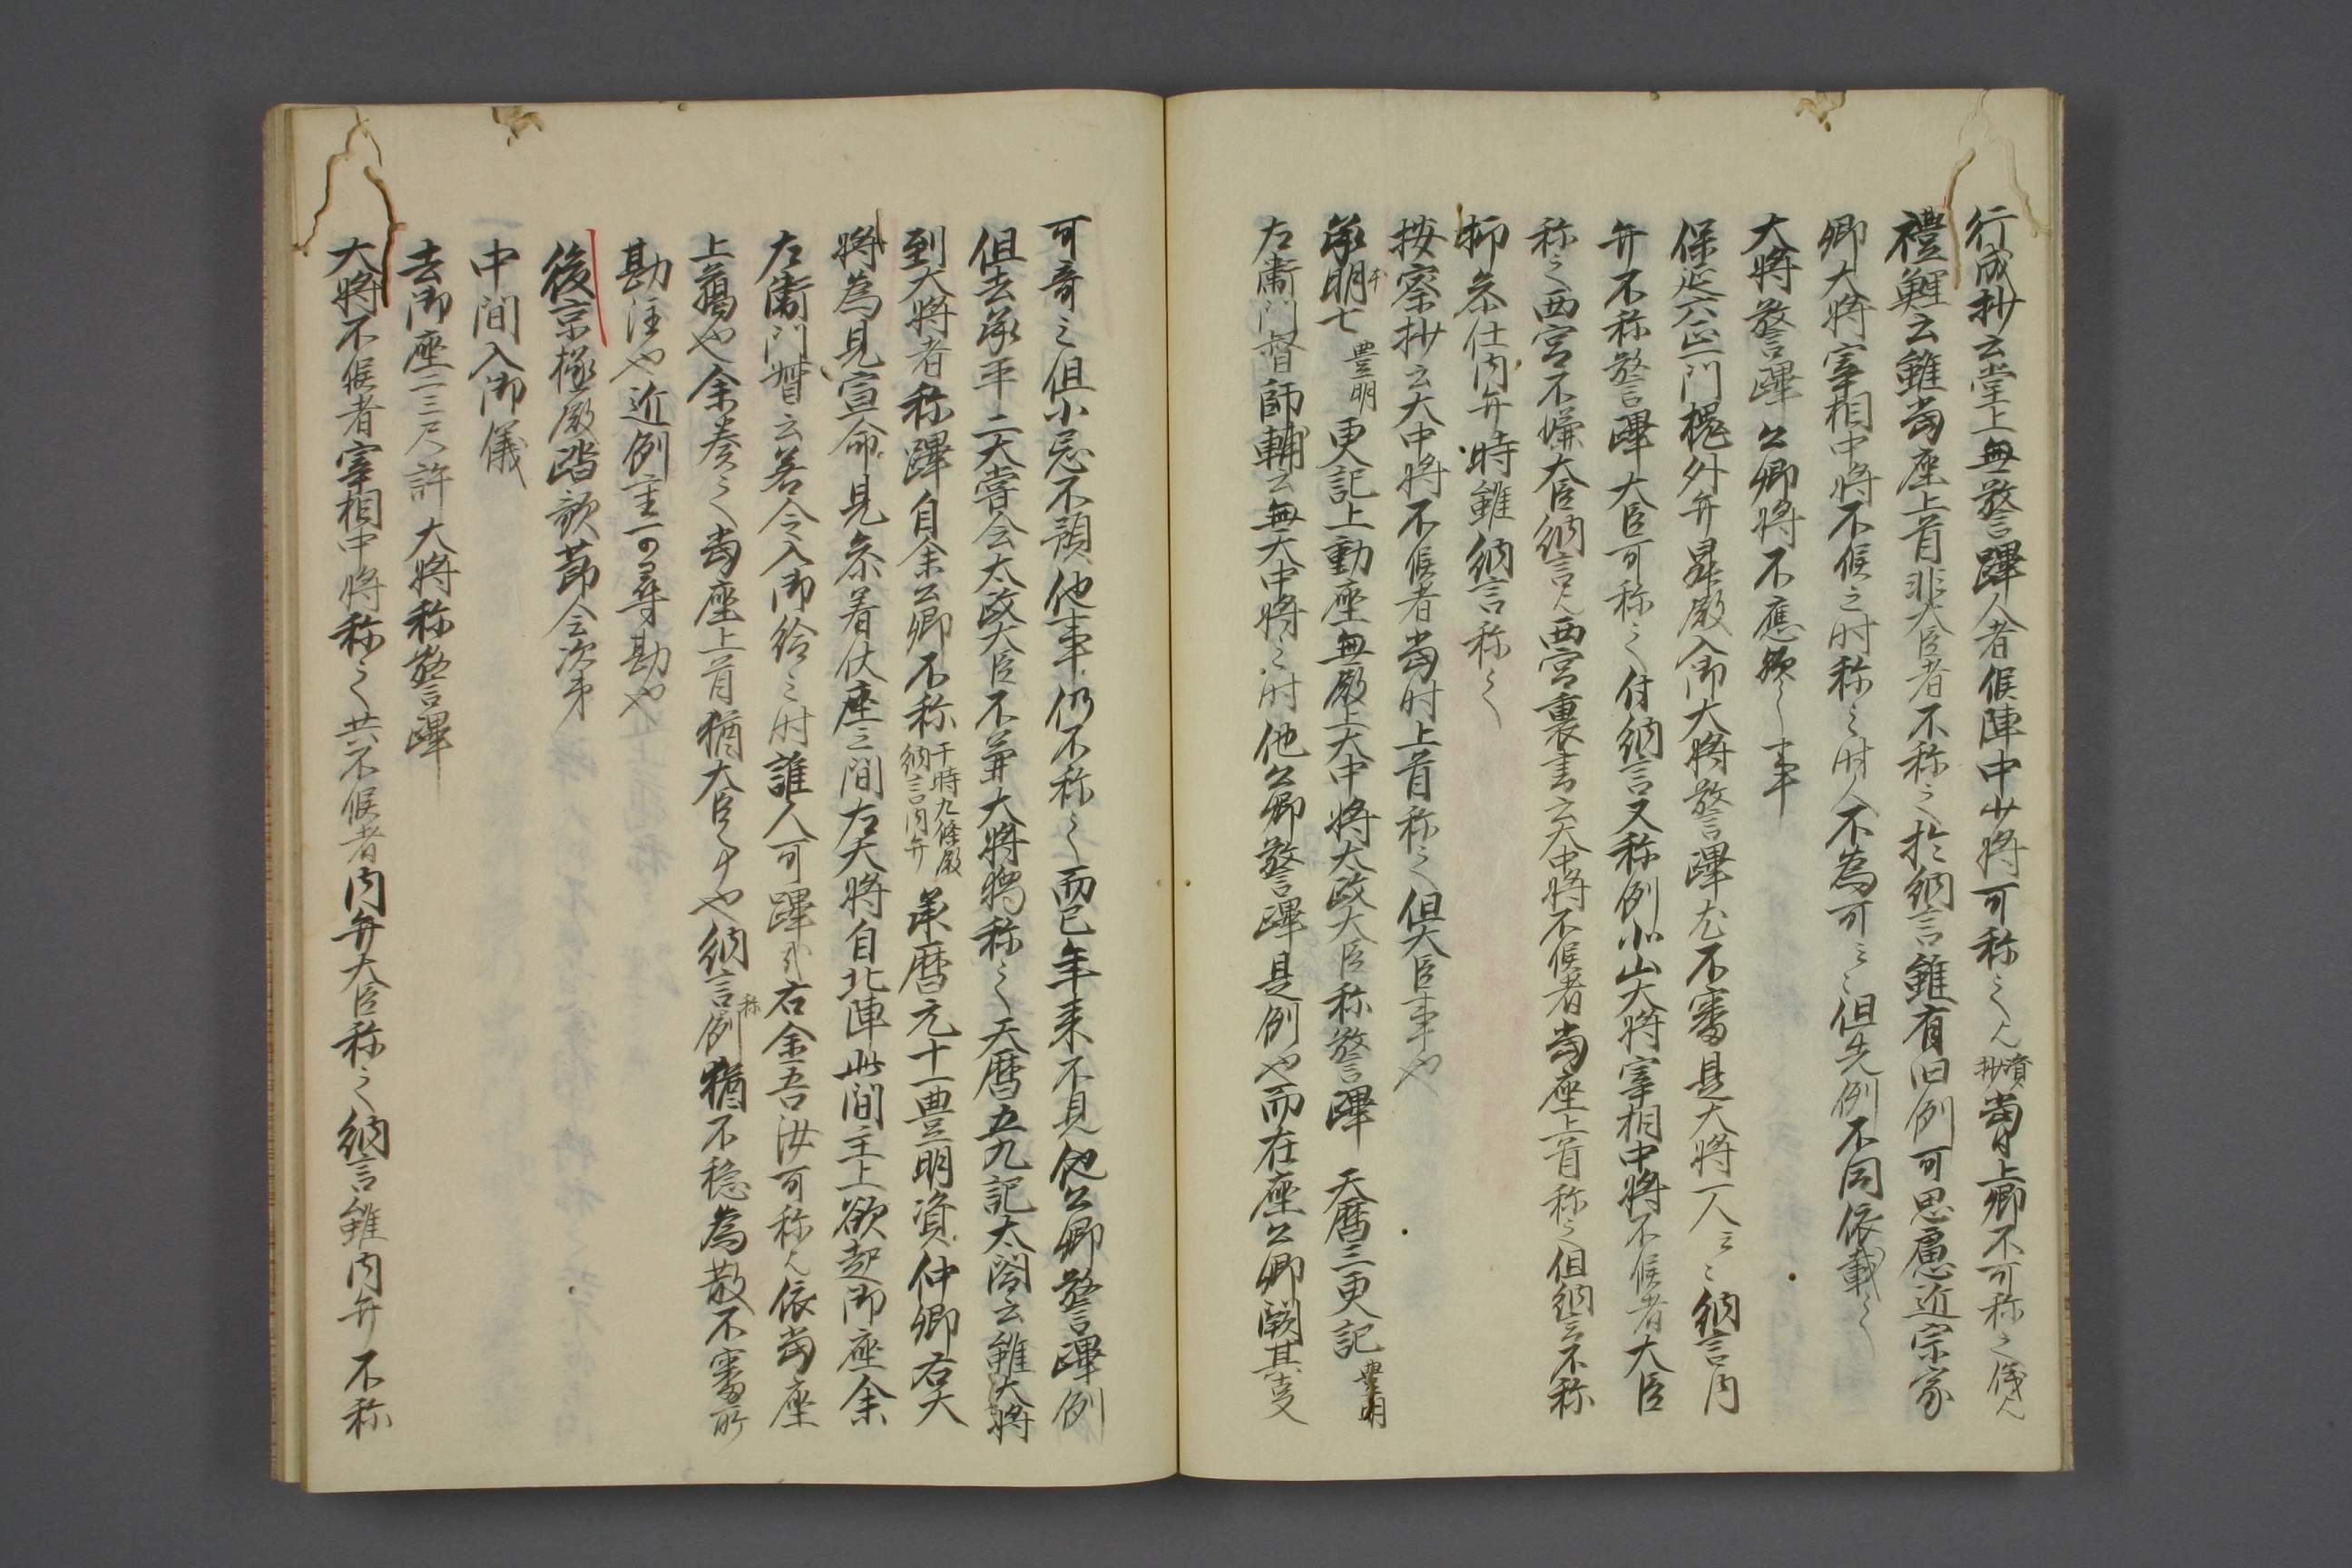 行成抄云堂上無警蹕人者候陣中少将可称之云々資抄当日上卿不可称之儀云々
礼 云雖当座上首非大臣者不称之於納言雖有旧例可思慮近宗家
卿大将宰相中将不候之時称之時人不為可云々但先例不同依載之
大将警蹕公卿将不応 之事
保延六正一門槐外弁昇殿入御大将警蹕尤不審是大将一人云々納言内
弁不称警蹕大臣可称之付納言又称例小山大将宰相中将不候者大臣
称之西宮不嫌大臣納言云々西宮裏書云大中将不候者当座上首称之但納言不称
抑参仕内弁時雖納言称之
按察抄云大中将不候者当時上首称之但大臣事也
承明七豊明更記上動座無殿上大中将太政大臣称警蹕 天暦三更記豊明
左衛門督師輔云無大中将之時他公卿警蹕是例也而在座公卿闕其事
可奇之但小忌不預他事仍不称之而已年来不見他公卿警蹕例
但去承平二大嘗会太政大臣不兼大将猶称之天暦五九記太閤云雖大将
到大将者称蹕自余公卿不称于時九条殿納言内弁 承暦元十一豊明資仲卿右大
将為見宣命見参着伏座之間左大将自北陣此間主上欲起御座余
左衛門督云若令入御給之時誰人可蹕哉右金吾汝可称云々依当座
上﨟也余奏之当座上首猶大臣之中也納言称例猶不穏為散不審所
勘注也近例重可尋勘也
後京極殿踏歌節会次第
中間入御儀
去御座二三尺許大将称警蹕
大将不候者宰相中将称之共不候者内弁大臣称之納言雖内弁不称